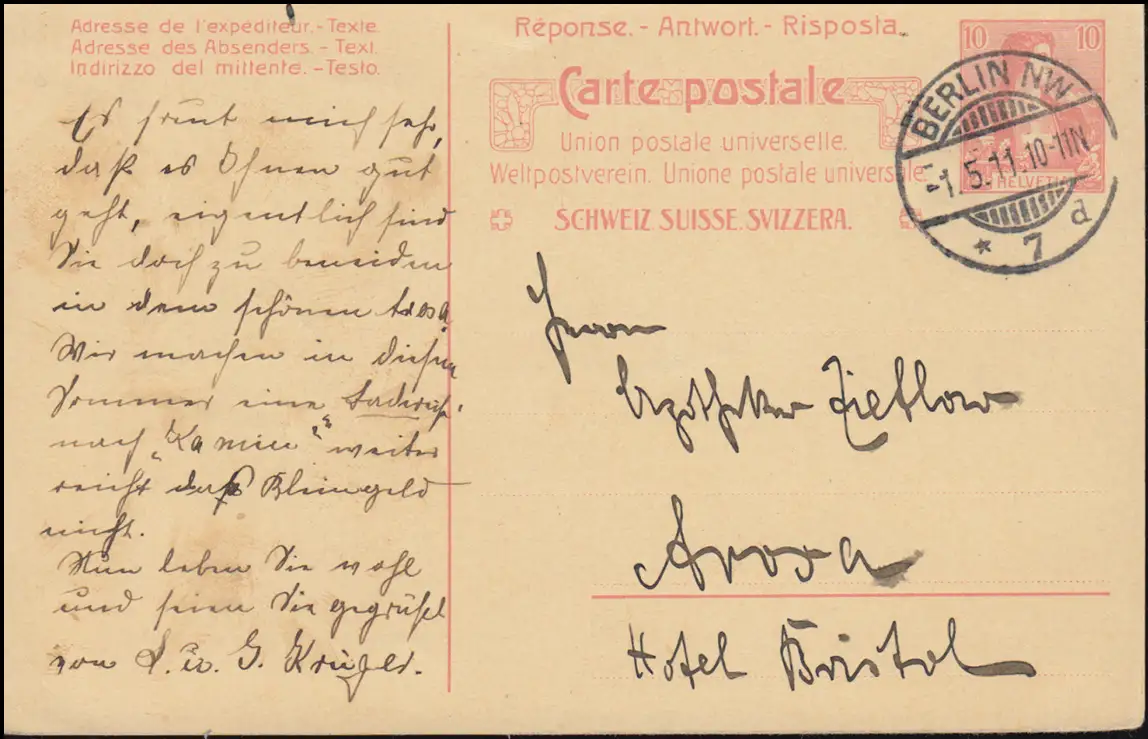 Adresse de l'expéditeur.-Texte.
Adresse des Absenders.-Text.
Indirizzo del mittente.-Testo.
Réponse.-Antwort.-Risposta.
10 10
Carte postale
Union postale universelle.
Weltpostverein. Unione postale universale.
SCHWEIZ. SUISSE. SVIZZERA.
HELVETIA
BERLIN NW
-1.5.11.10-11N
* 7 d
Es freut mich sehr,
daß es Ihnen gut
geht, eigentlich sind
Sie doch zu beneiden
in dem schönen Arosa.
Wir machen in diesem
Sommer eine
nach "Kamin" weiter
reicht das Kleingeld
nicht.
Nun leben Sie wohl
und seien Sie gegrüßt
von L. u. G. Krüger.
Herrn
Apotheker Zietlow
Arosa
Hotel Bristol